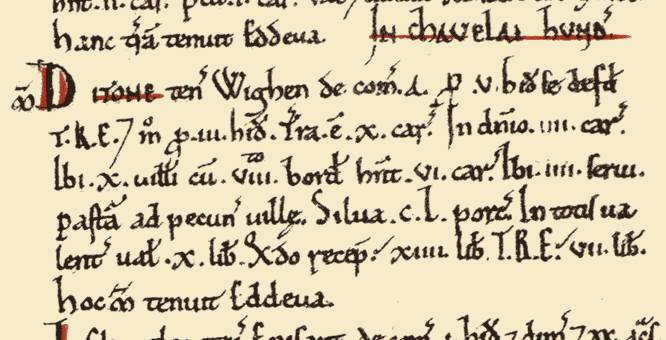 hanc t'rā tenuit Eddeva. IN CHAVELAI HUND'.
ꝏ DITONE ten' Wighen de com̄. A. p̱ .v. hid̄ se defd̄
T.R.E. ⁊ m̊ p̱ .iii. hid̄. Tr̄a. ē .x. car̄. In dn̄io .iiii. car̄.
Ibi .x. uilli cū .viii. bord̄ hn̄t .vi. car̄. Ibi .iiii. serui.
pastā ad pecun' uillę. Silua .c.l. porc̄. In totis ua
lent' ual̄ .x. lib̄. Qdo recep̄. xiiii. lib̄. T.R.E. vii. lib̄.
hoc ꝏ tenuit Eddeva.